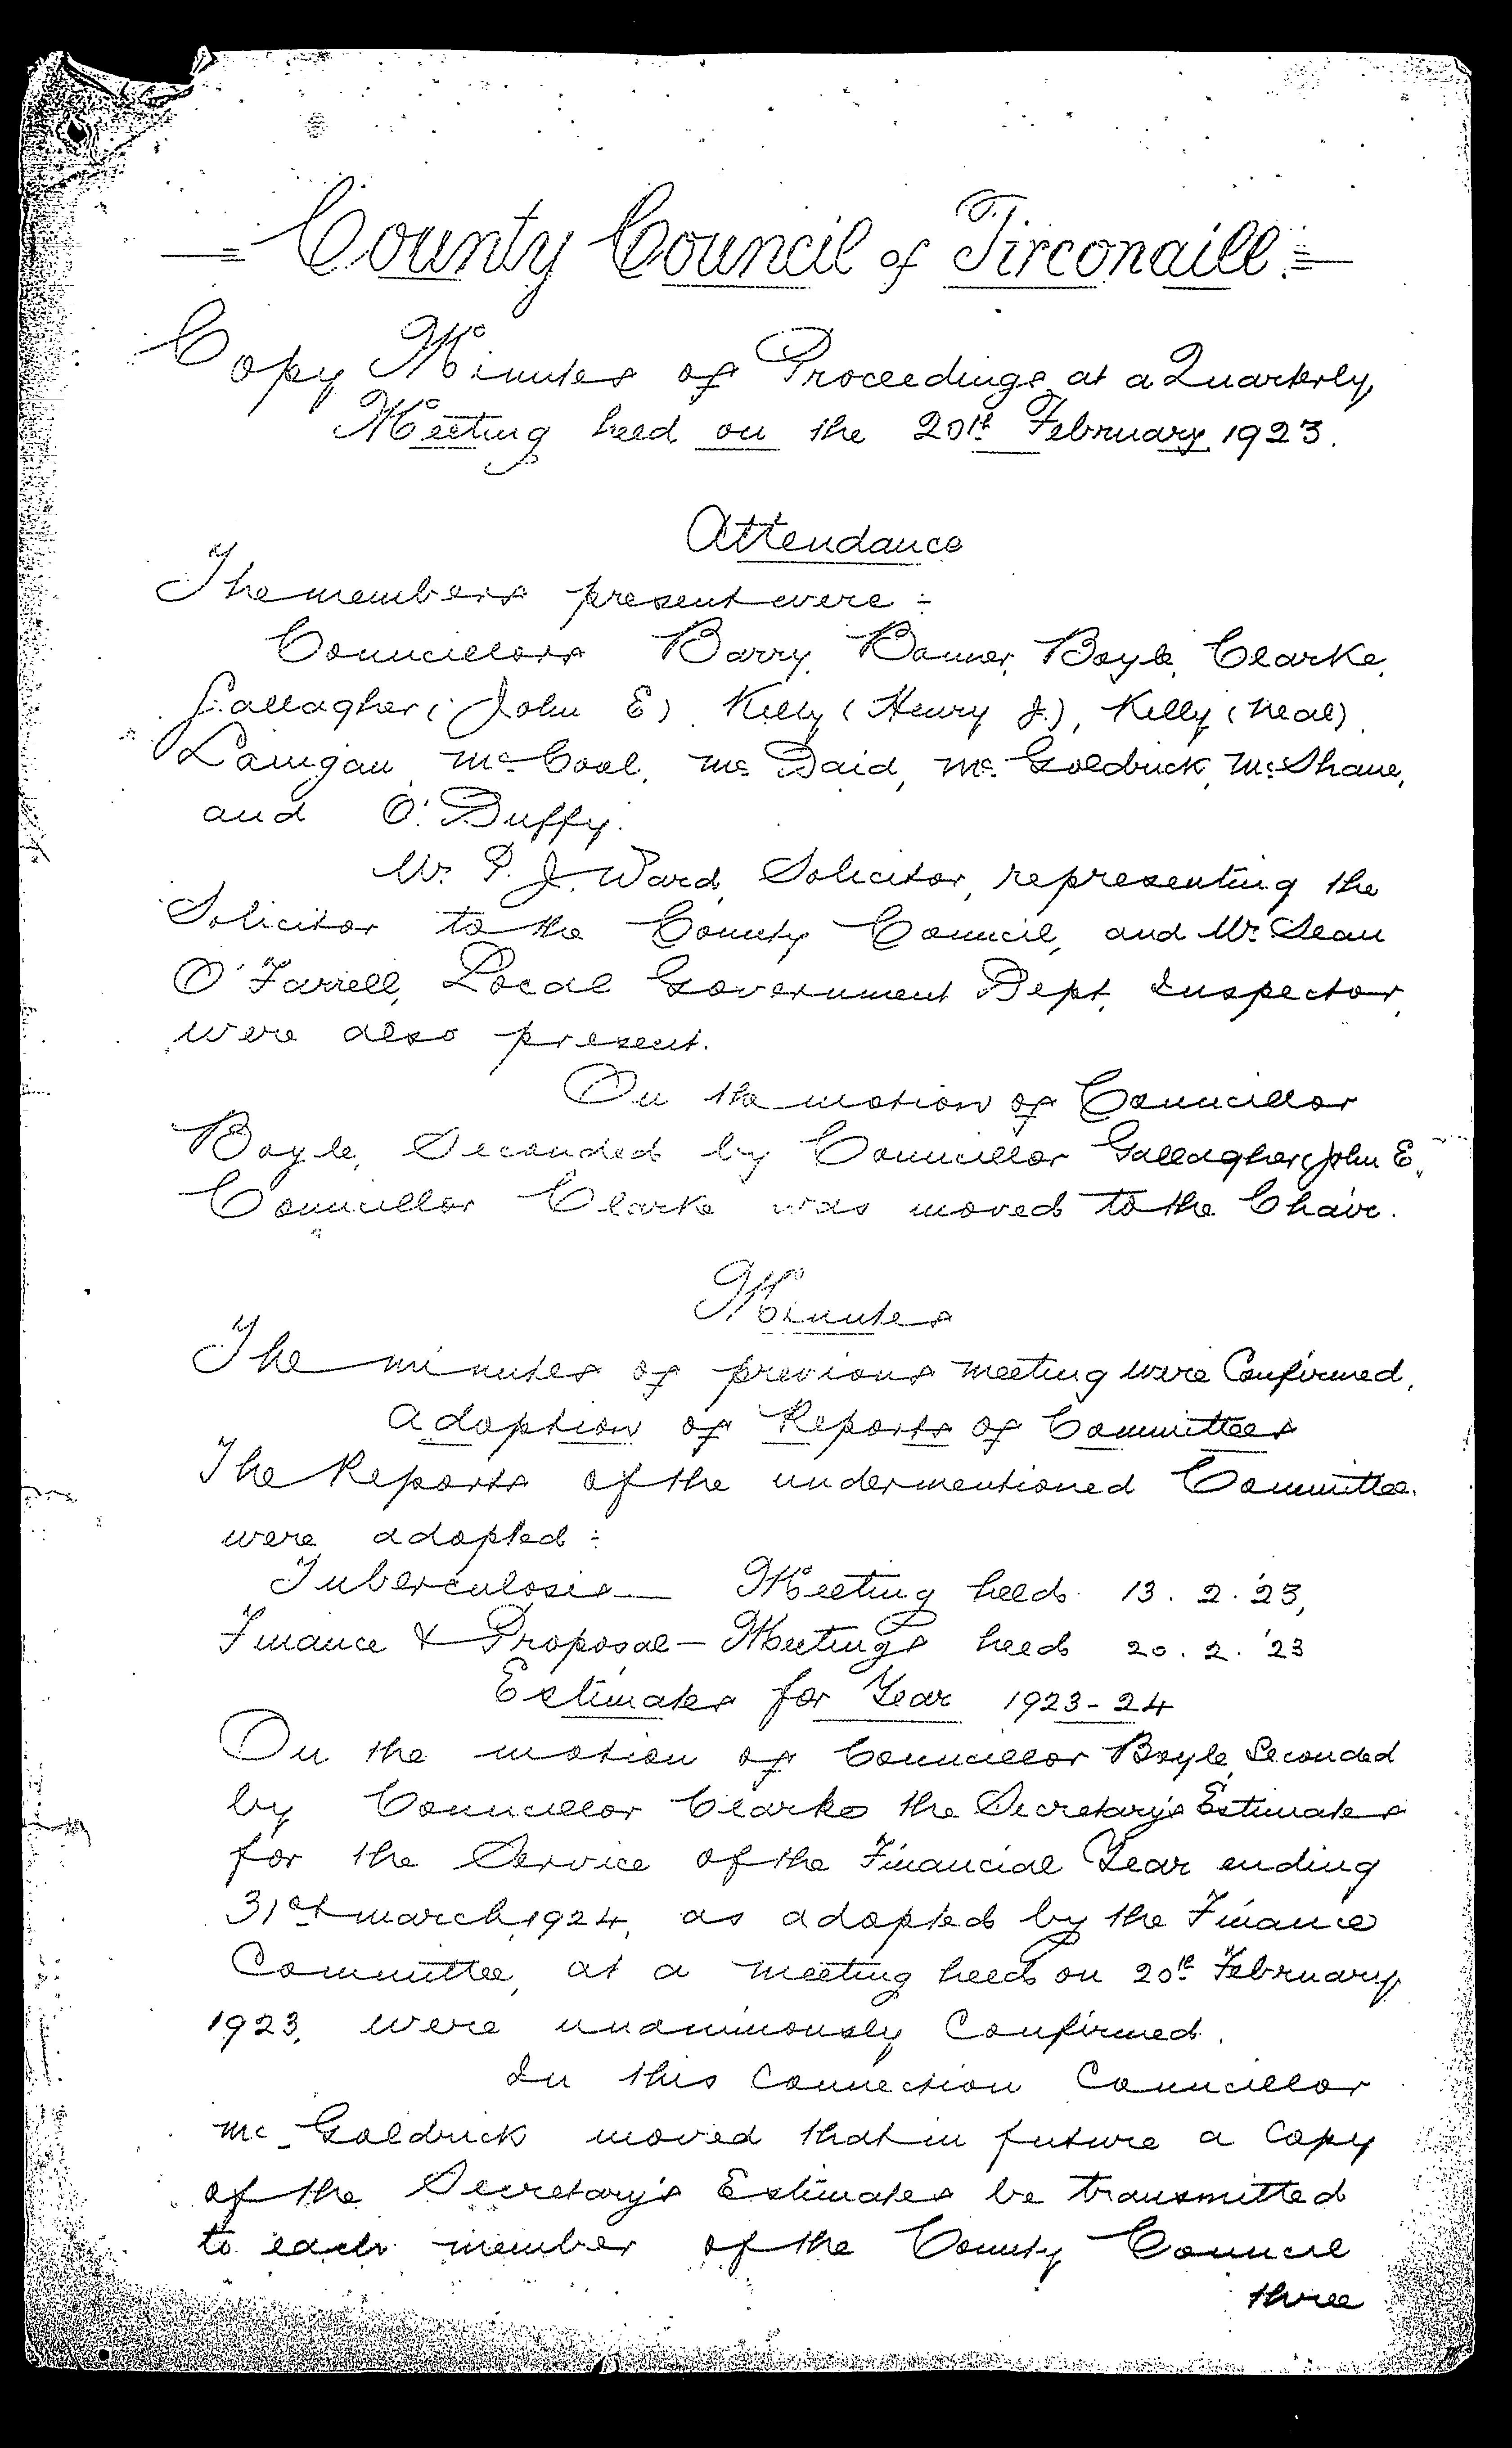 County Council of Tirconaill
Copy Minutes of Proceedings at a Quarterly
Meeting held on the 20th February 1923.
Attendance
The members present were :-
Councillors Barry, Bonner, Boyle, Clarke,
Gallagher (John E), Kelly (Henry J.), Kelly (Neal),
Lanigan, McCool, McDaid, McGoldrick, McShane,
and O'Duffy.
Mr. P. J. Ward, Solicitor, representing the
Solicitor to the County Council, and Mr. Sean
O'Farrell, Local Government Dept. Inspector,
were also present.
On the motion of Councillor
Boyle, Seconded by Councillor Gallagher (John E,
Councillor Clarke was moved to the Chair.
Minutes
The minutes of previous meeting were Confirmed.
Adoption of Reports of Committees
The Reports of the undermentioned Committee
were adopted :-
Tuberculosis — Meeting held 13. 2. '23,
Finance & Proposal — Meetings held 20. 2. '23
Estimates for Year 1923-24
On the motion of Councillor Boyle, Seconded
by Councillor Clarke the Secretary's Estimates
for the Service of the Financial Year ending
31st March, 1924, as adopted by the Finance
Committee, at a meeting held on 20th February
1923, were unanimously Confirmed.
In this Connection Councillor
McGoldrick moved that in future a Copy
of the Secretary's Estimates be transmitted
to each member of the County Council
three